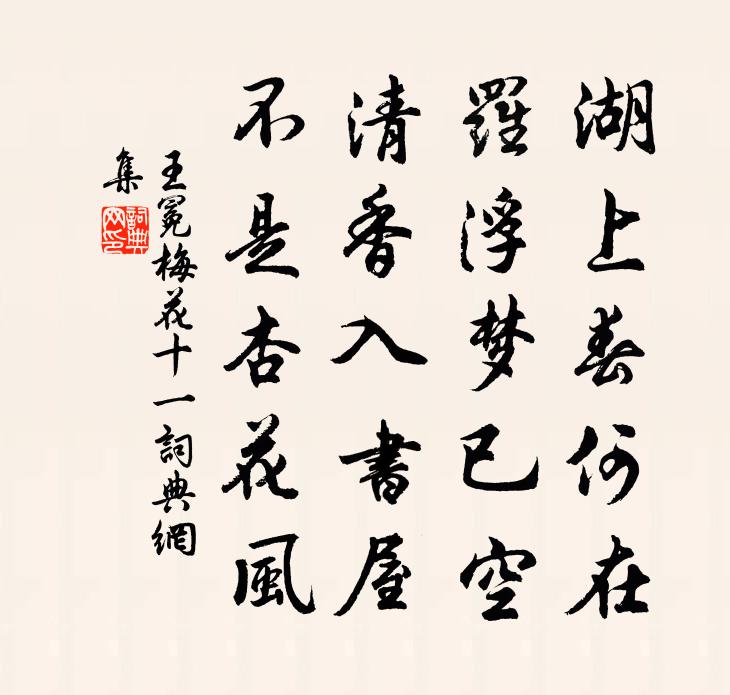 湖上春何在
羅浮梦已空
清香入書屋
不是杏花風
王冕梅花十一詞典網
集
詞典
网印